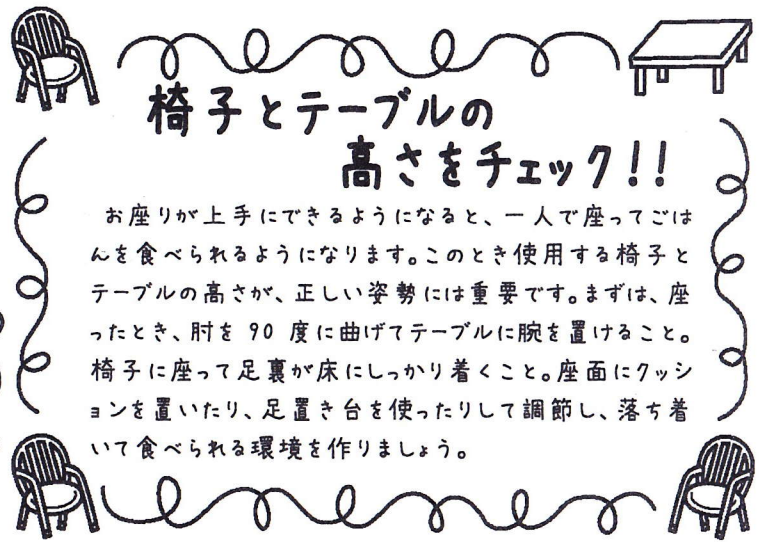 椅子とテーブルの
高さをチェック!!
お座りが上手にできるようになると、一人で座ってごは
んを食べられるようになります。このとき使用する椅子と
テーブルの高さが、正しい姿勢には重要です。まずは、座
ったとき、肘を 90 度に曲げてテーブルに腕を置けること。
椅子に座って足裏が床にしっかり着くこと。座面にクッシ
ョンを置いたり、足置き台を使ったりして調節し、落ち着
いて食べられる環境を作りましょう。